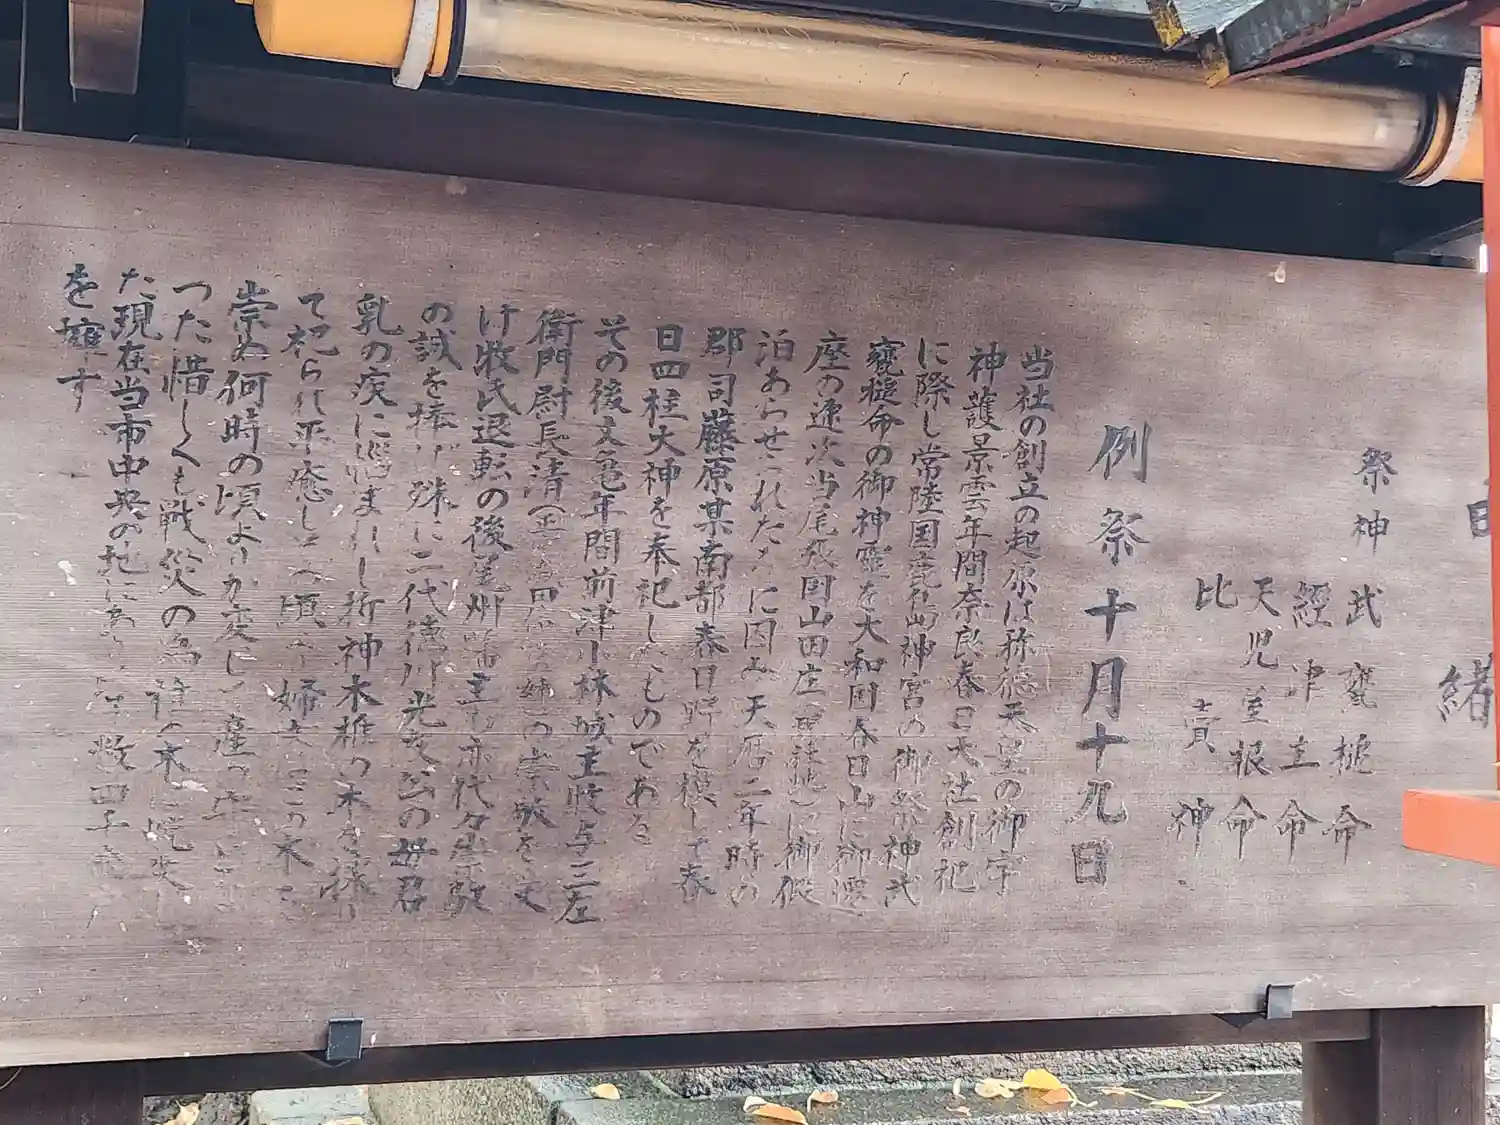 緒
祭神 武甕槌命
經津主命
天児屋根命
比賣神
例祭十月十九日
当社の創立の起原は称徳天皇の御宇
神護景雲年間奈良春日大社創祀
に際し常陸国鹿島神宮の御祭神武
甕槌命の御神霊を大和国春日山に御遷
座の途次当尾張国山田庄( )に御仮
泊あらせられた に因み天暦二年時の
郡司藤原某南都春日 を模して春
日四柱大神を奉祀したものである
その後文亀年間前津小林城主牧与三左
衛門尉長清(正 の崇敬を受
け牧氏退転の後尾州 主も亦代々崇敬
の誠を捧げ殊に二代徳川光友公の母君
乳の疾に悩まれし折神木椎の木を採り
て祀られ平癒し 頃 婦女 この木を
崇め何時の頃よりか
つた惜しくも戦災の為 の木 焼失
た現在当市中央の地にあり 数四千
を擁す